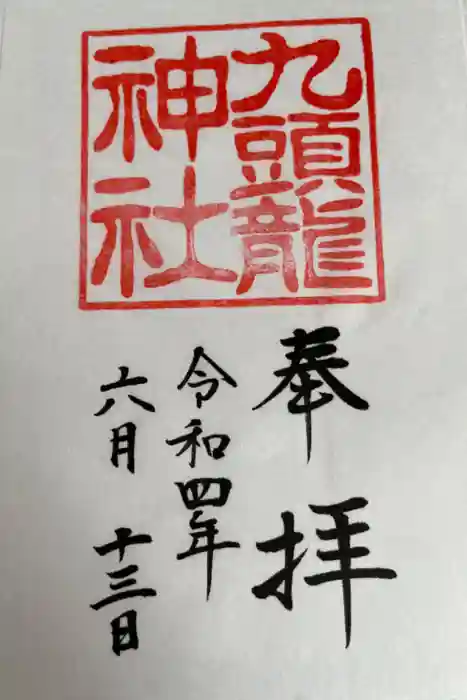 九頭龍
神社
奉拝
令和四年
六月十三日